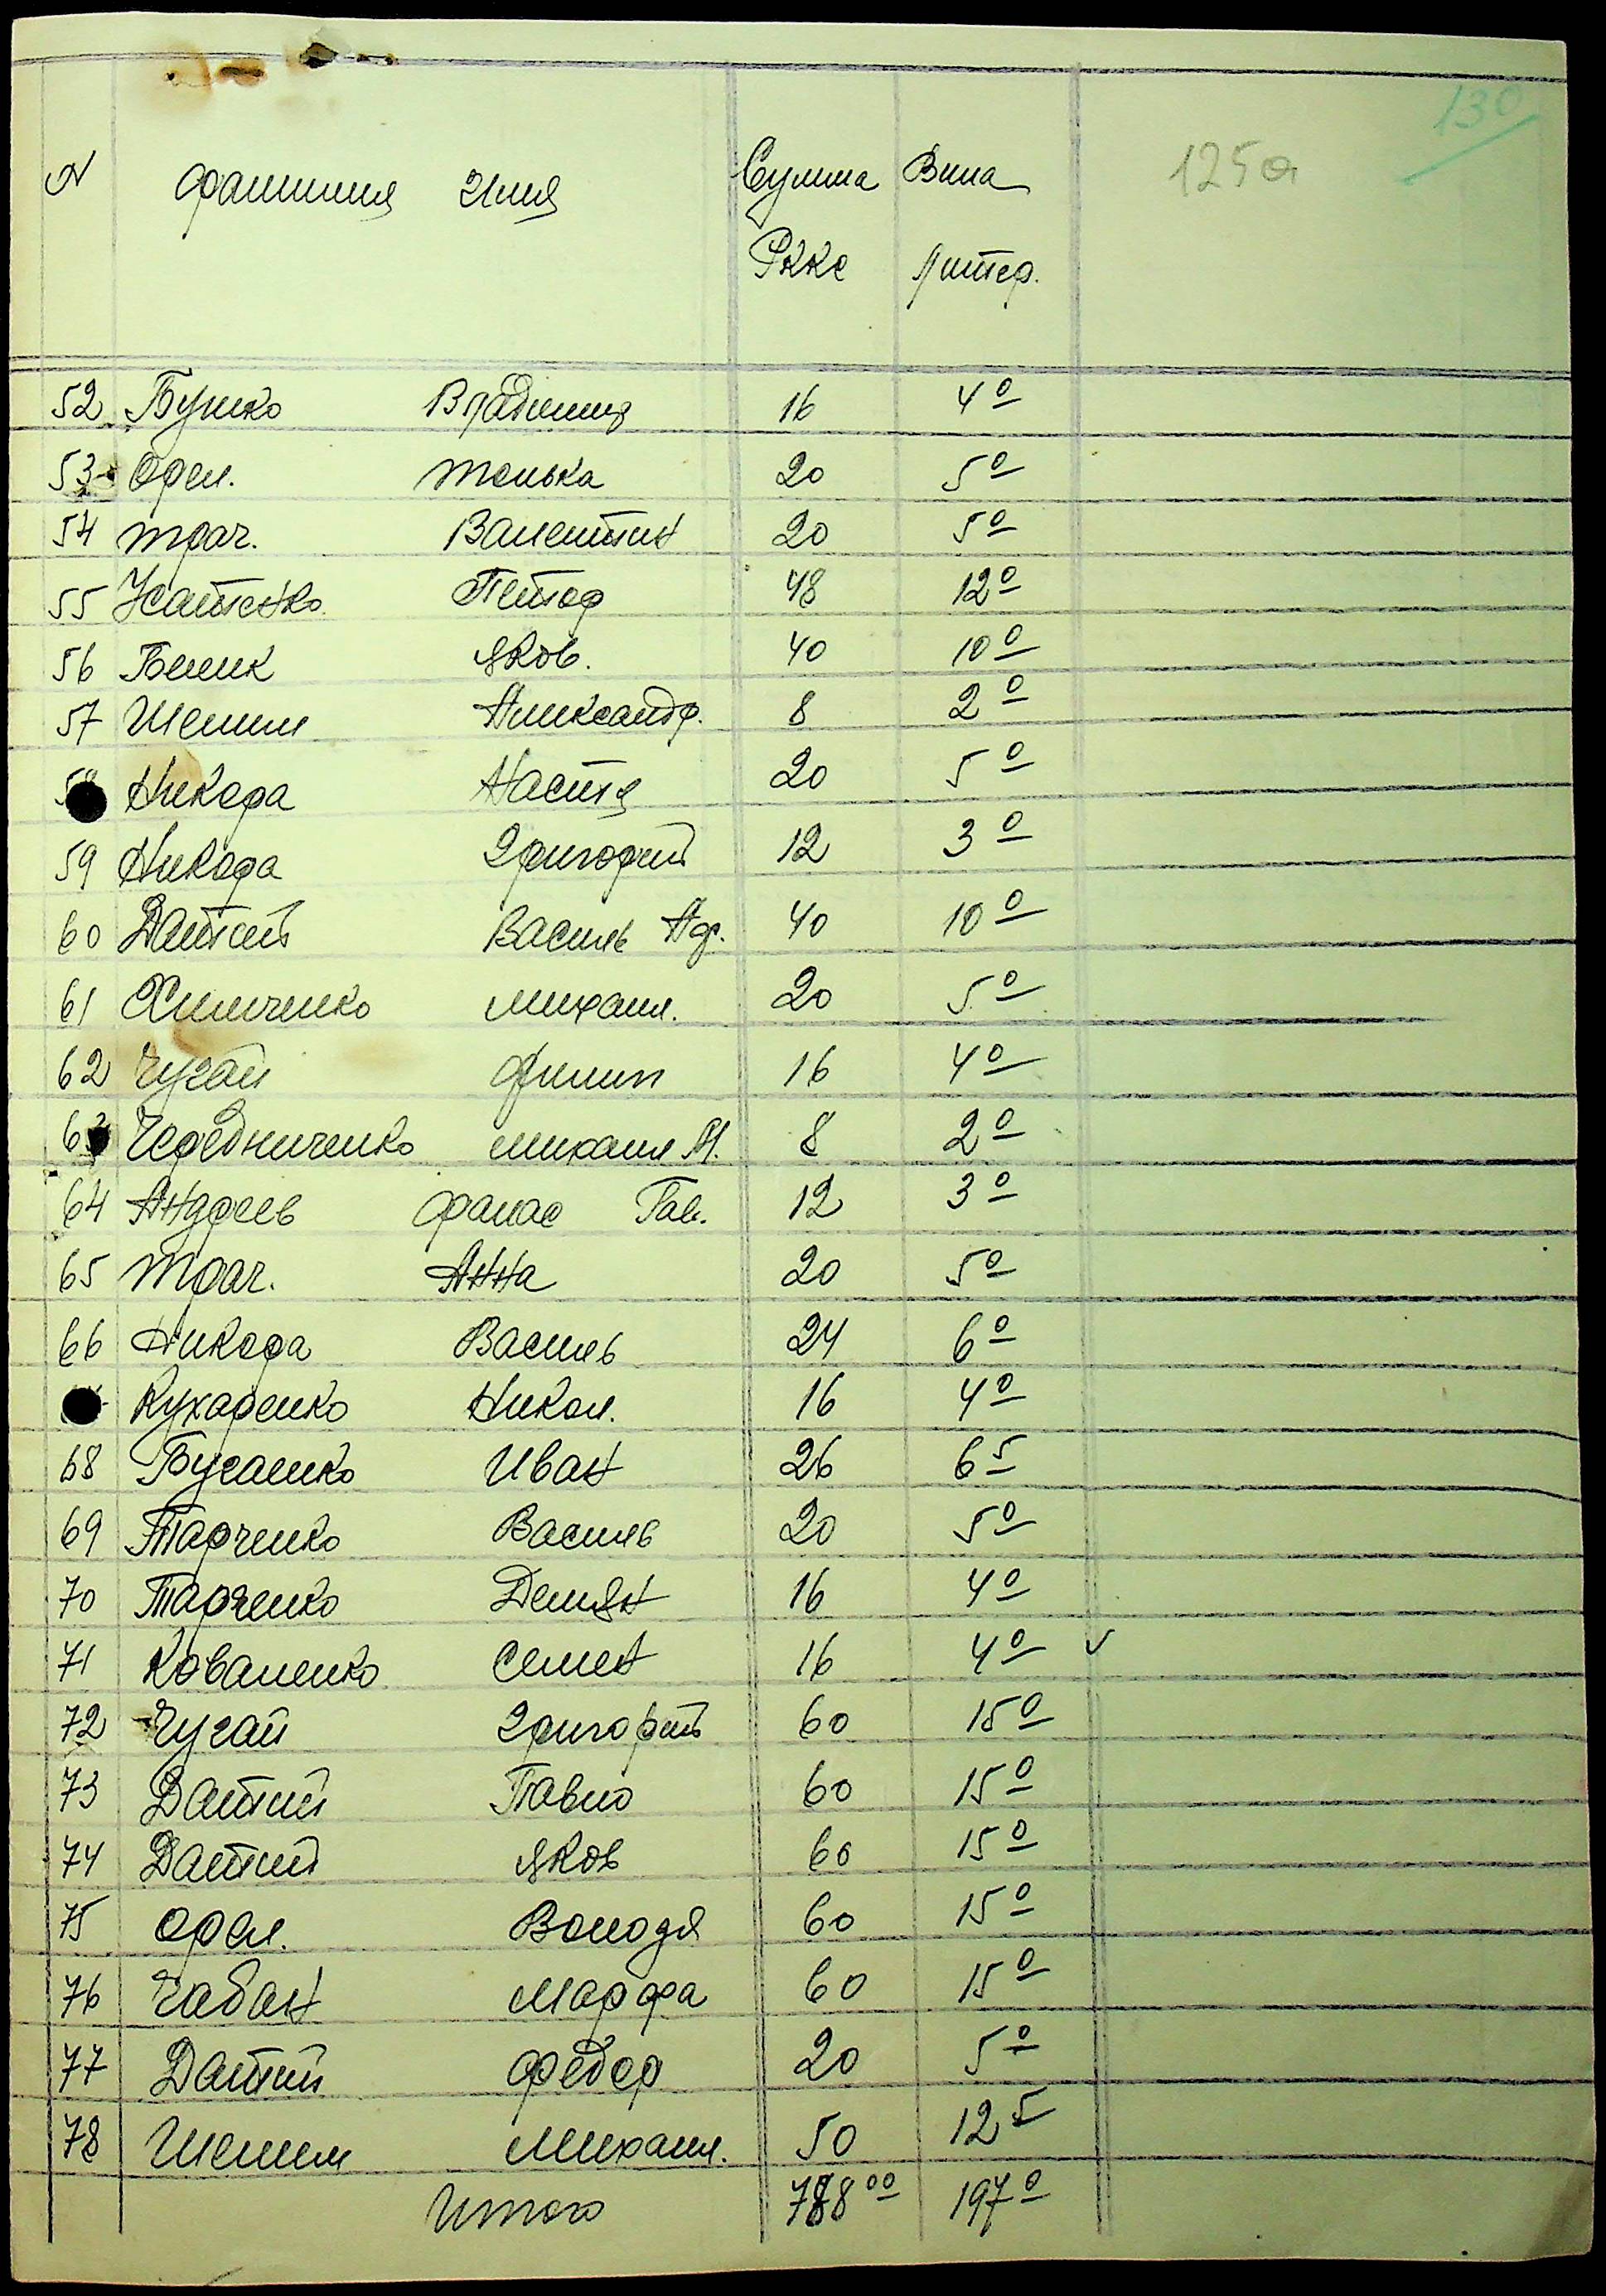 130
125а
N Фамилия Имя Сумма Вина
Ркке Литер.
52 Бунко Владимир 16 4 0
53 Орел. Тонька 20 5 0
54 Трач. Валентин 20 5 0
55 Усатенко Петор 48 12 0
56 Билик Яков. 40 10 0
57 Шелим Аликсандр. 8 2 0
58 Никора Настя 20 5 0
59 Никора Григорий 12 3 0
60 Датий Василь Ар. 40 10 0
61 Химченко Михаил. 20 5 0
62 Чугай Филип 16 4 0
63 Чередниченко Михаил М. 8 2 0
64 Андреев Фанас Гав. 12 3 0
65 Трач. Анна 20 5 0
66 Никора Василь 24 6 0
Кухаренко Никол. 16 4 0
68 Бугаенко Иван 26 6 5
69 Тарченко Василь 20 5 0
70 Тарченко Демян 16 4 0
71 Коваленко Семен 16 4 0 ✓
72 Чугай Григорий 60 15 0
73 Датий Павло 60 15 0
74 Датий Яков 60 15 0
75 Орел. Володя 60 15 0
76 Чабан Марфа 60 15 0
77 Датий Федор 20 5 0
78 Шелим Михаил. 50 12 5
Итого 788 00 197 0